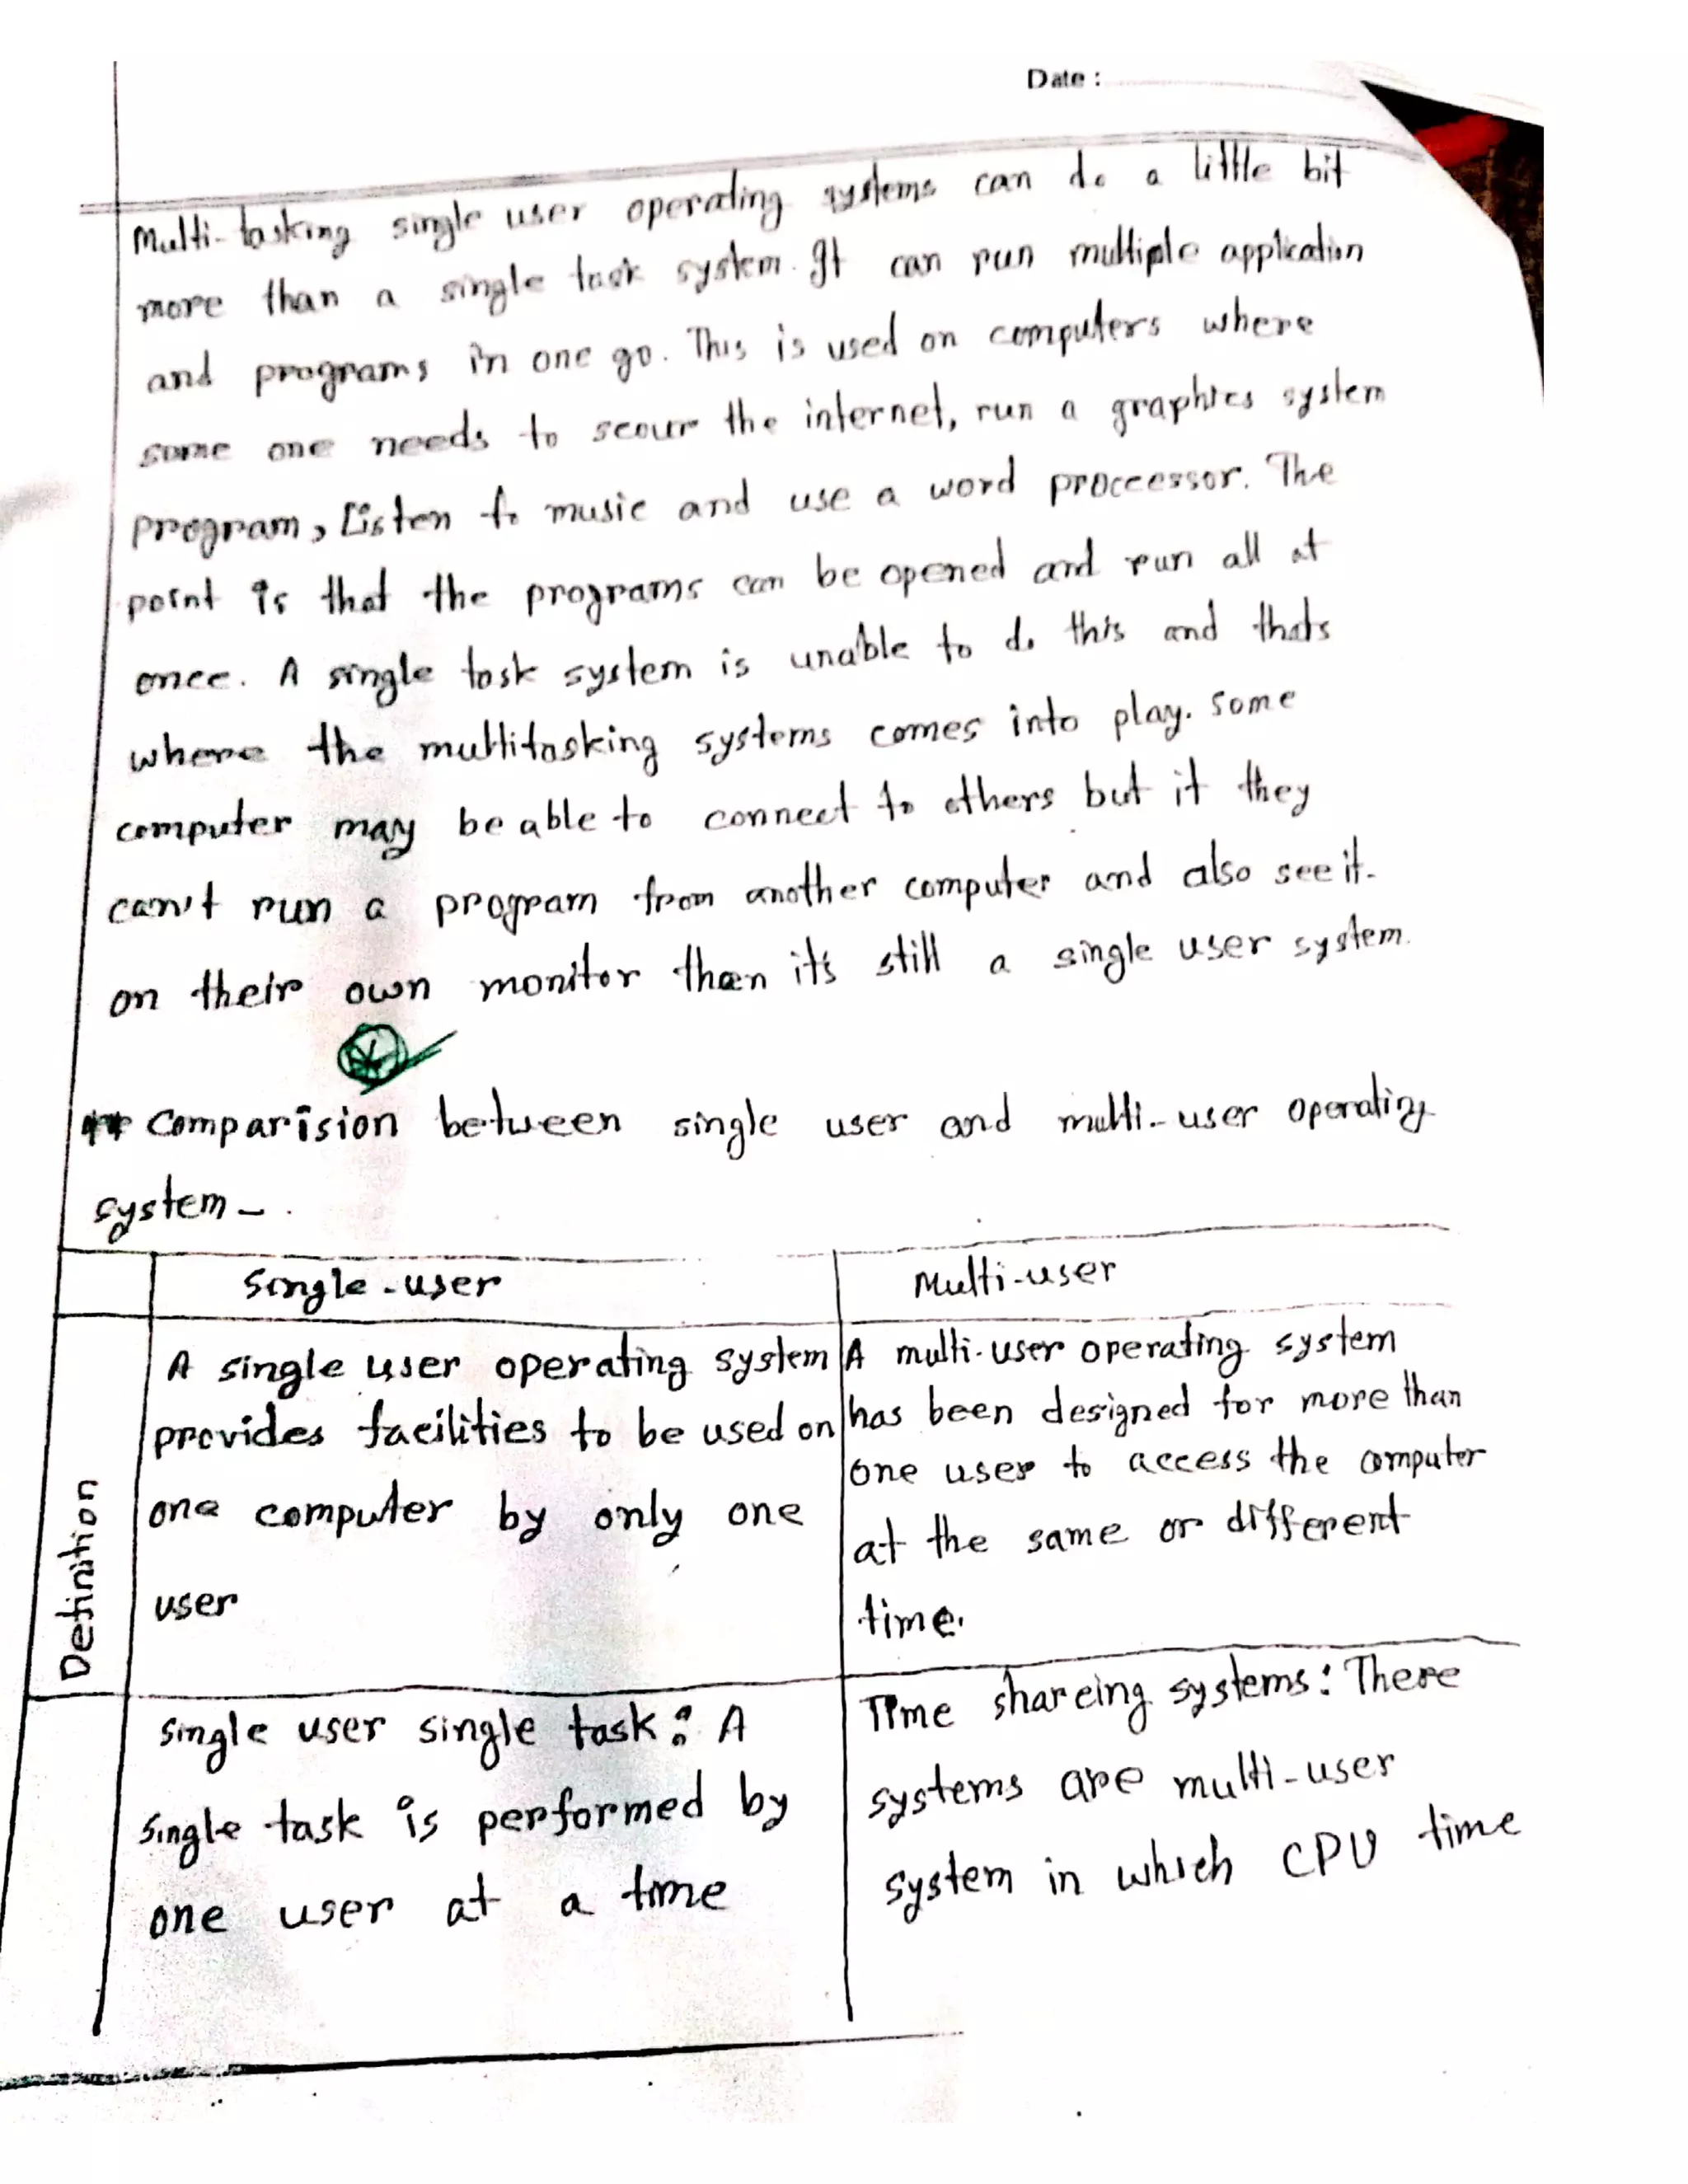 Date :
Multi-tasking single user operating systems can do a little bit
more than a single task system. It can run multiple application
and programs in one go. This is used on computers where
some one needs to scour the internet, run a graphics system
program, Listen to music and use a word proccessor. The
point is that the programs can be opened and run all at
once. A single task system is unable to do this and thats
where the multitasking systems comes into play. Some
computer may be able to connect to others but it they
can't run a program from another computer and also see it.
on their own monitor then it's still a single user system.
** Comparision between single user and multi-user operating
system -
Single-user
Multi-user
Definition
A single user operating system
provides facilities to be used on
one computer by only one
user
A multi-user operating system
has been designed for more than
one user to access the computer
at the same or different
time.
Single user single task: A
single task is performed by
one user at a time
Time shareing systems: There
systems are multi-user
system in which CPU time